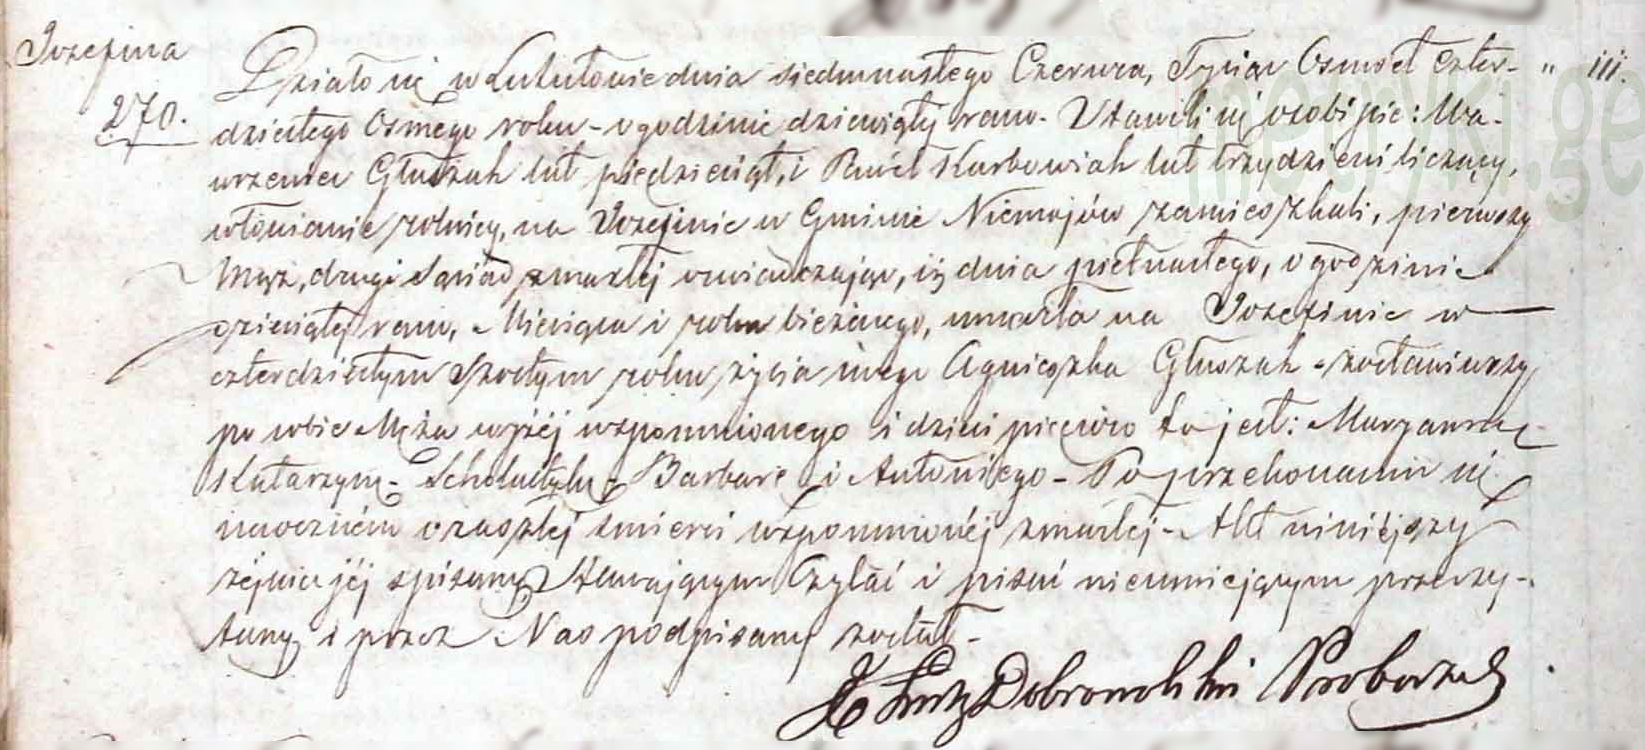 Jozefina
270.
Działo się w Lututowie dnia siedmnastego Czerwca, Tysiąc Osmset czter- „ iii.
dziestego Osmego roku - o godzinie dziewiątej rano. Stawili się osobiście: Wa-
wrzeniec Głuszak lat piędziesiąt, i Paweł Karbowiak lat trzydzieści liczący,
włościanie rolnicy, na Jozefinie w Gminie Niemojów zamieszkali, pierwszy
Mąż, drugi Sąsiad zmarłej oswiadczając, iż dnia pietnastego, o godzinie
dziewiątej rano, Miesiąca i roku bieżącego, umarła na Jozefinie w
czterdziestym szostym roku życia swego Agnieszka Głuszak - zostawiwszy
po sobie Męża wyżej wspomnionego i dzieci pięcioro to jest: Maryannę
Katarzynę - Scholastykę - Barbarę i Antoniego - Po przekonaniu się
naoczném o zaszłej śmierci wspomnionéj zmarłej - Akt niniéjszy
zéjścia jéj spisany Stawającym Czytać i pisać nieumiejącym przeczy-
tany i przez Nas podpisany został -
X Dobrowolski Proboszcz
metryki.ge